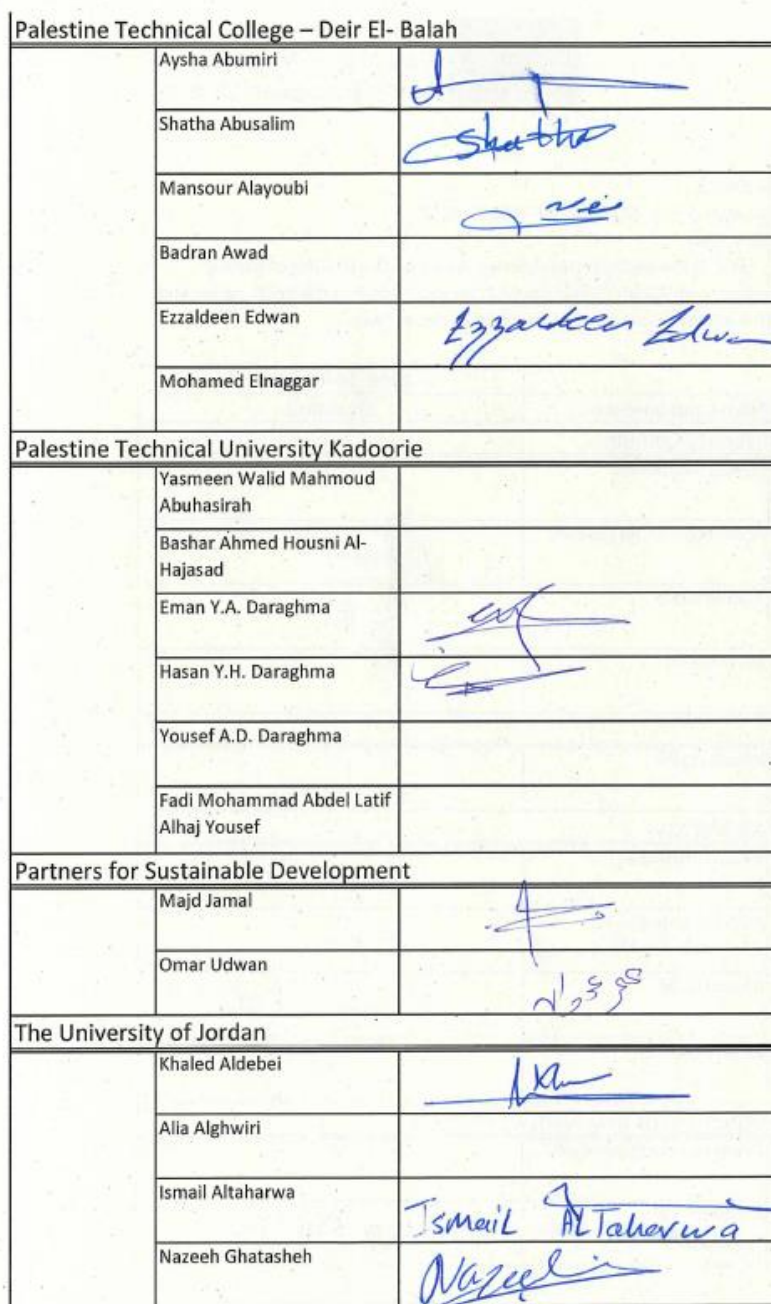 Palestine Technical College – Deir El- Balah
Aysha Abumiri
Shatha Abusalim
Shatha
Mansour Alayoubi
Badran Awad
Ezzaldeen Edwan
Ezzaldeen Edwan
Mohamed Elnaggar
Palestine Technical University Kadoorie
Yasmeen Walid Mahmoud
Abuhasirah
Bashar Ahmed Housni Al-
Hajasad
Eman Y.A. Daraghma
Hasan Y.H. Daraghma
Yousef A.D. Daraghma
Fadi Mohammad Abdel Latif
Alhaj Yousef
Partners for Sustainable Development
Majd Jamal
Omar Udwan
The University of Jordan
Khaled Aldebei
Alia Alghwiri
Ismail Altaharwa
Ismail ALTaharwa
Nazeeh Ghatasheh
Nazeeh